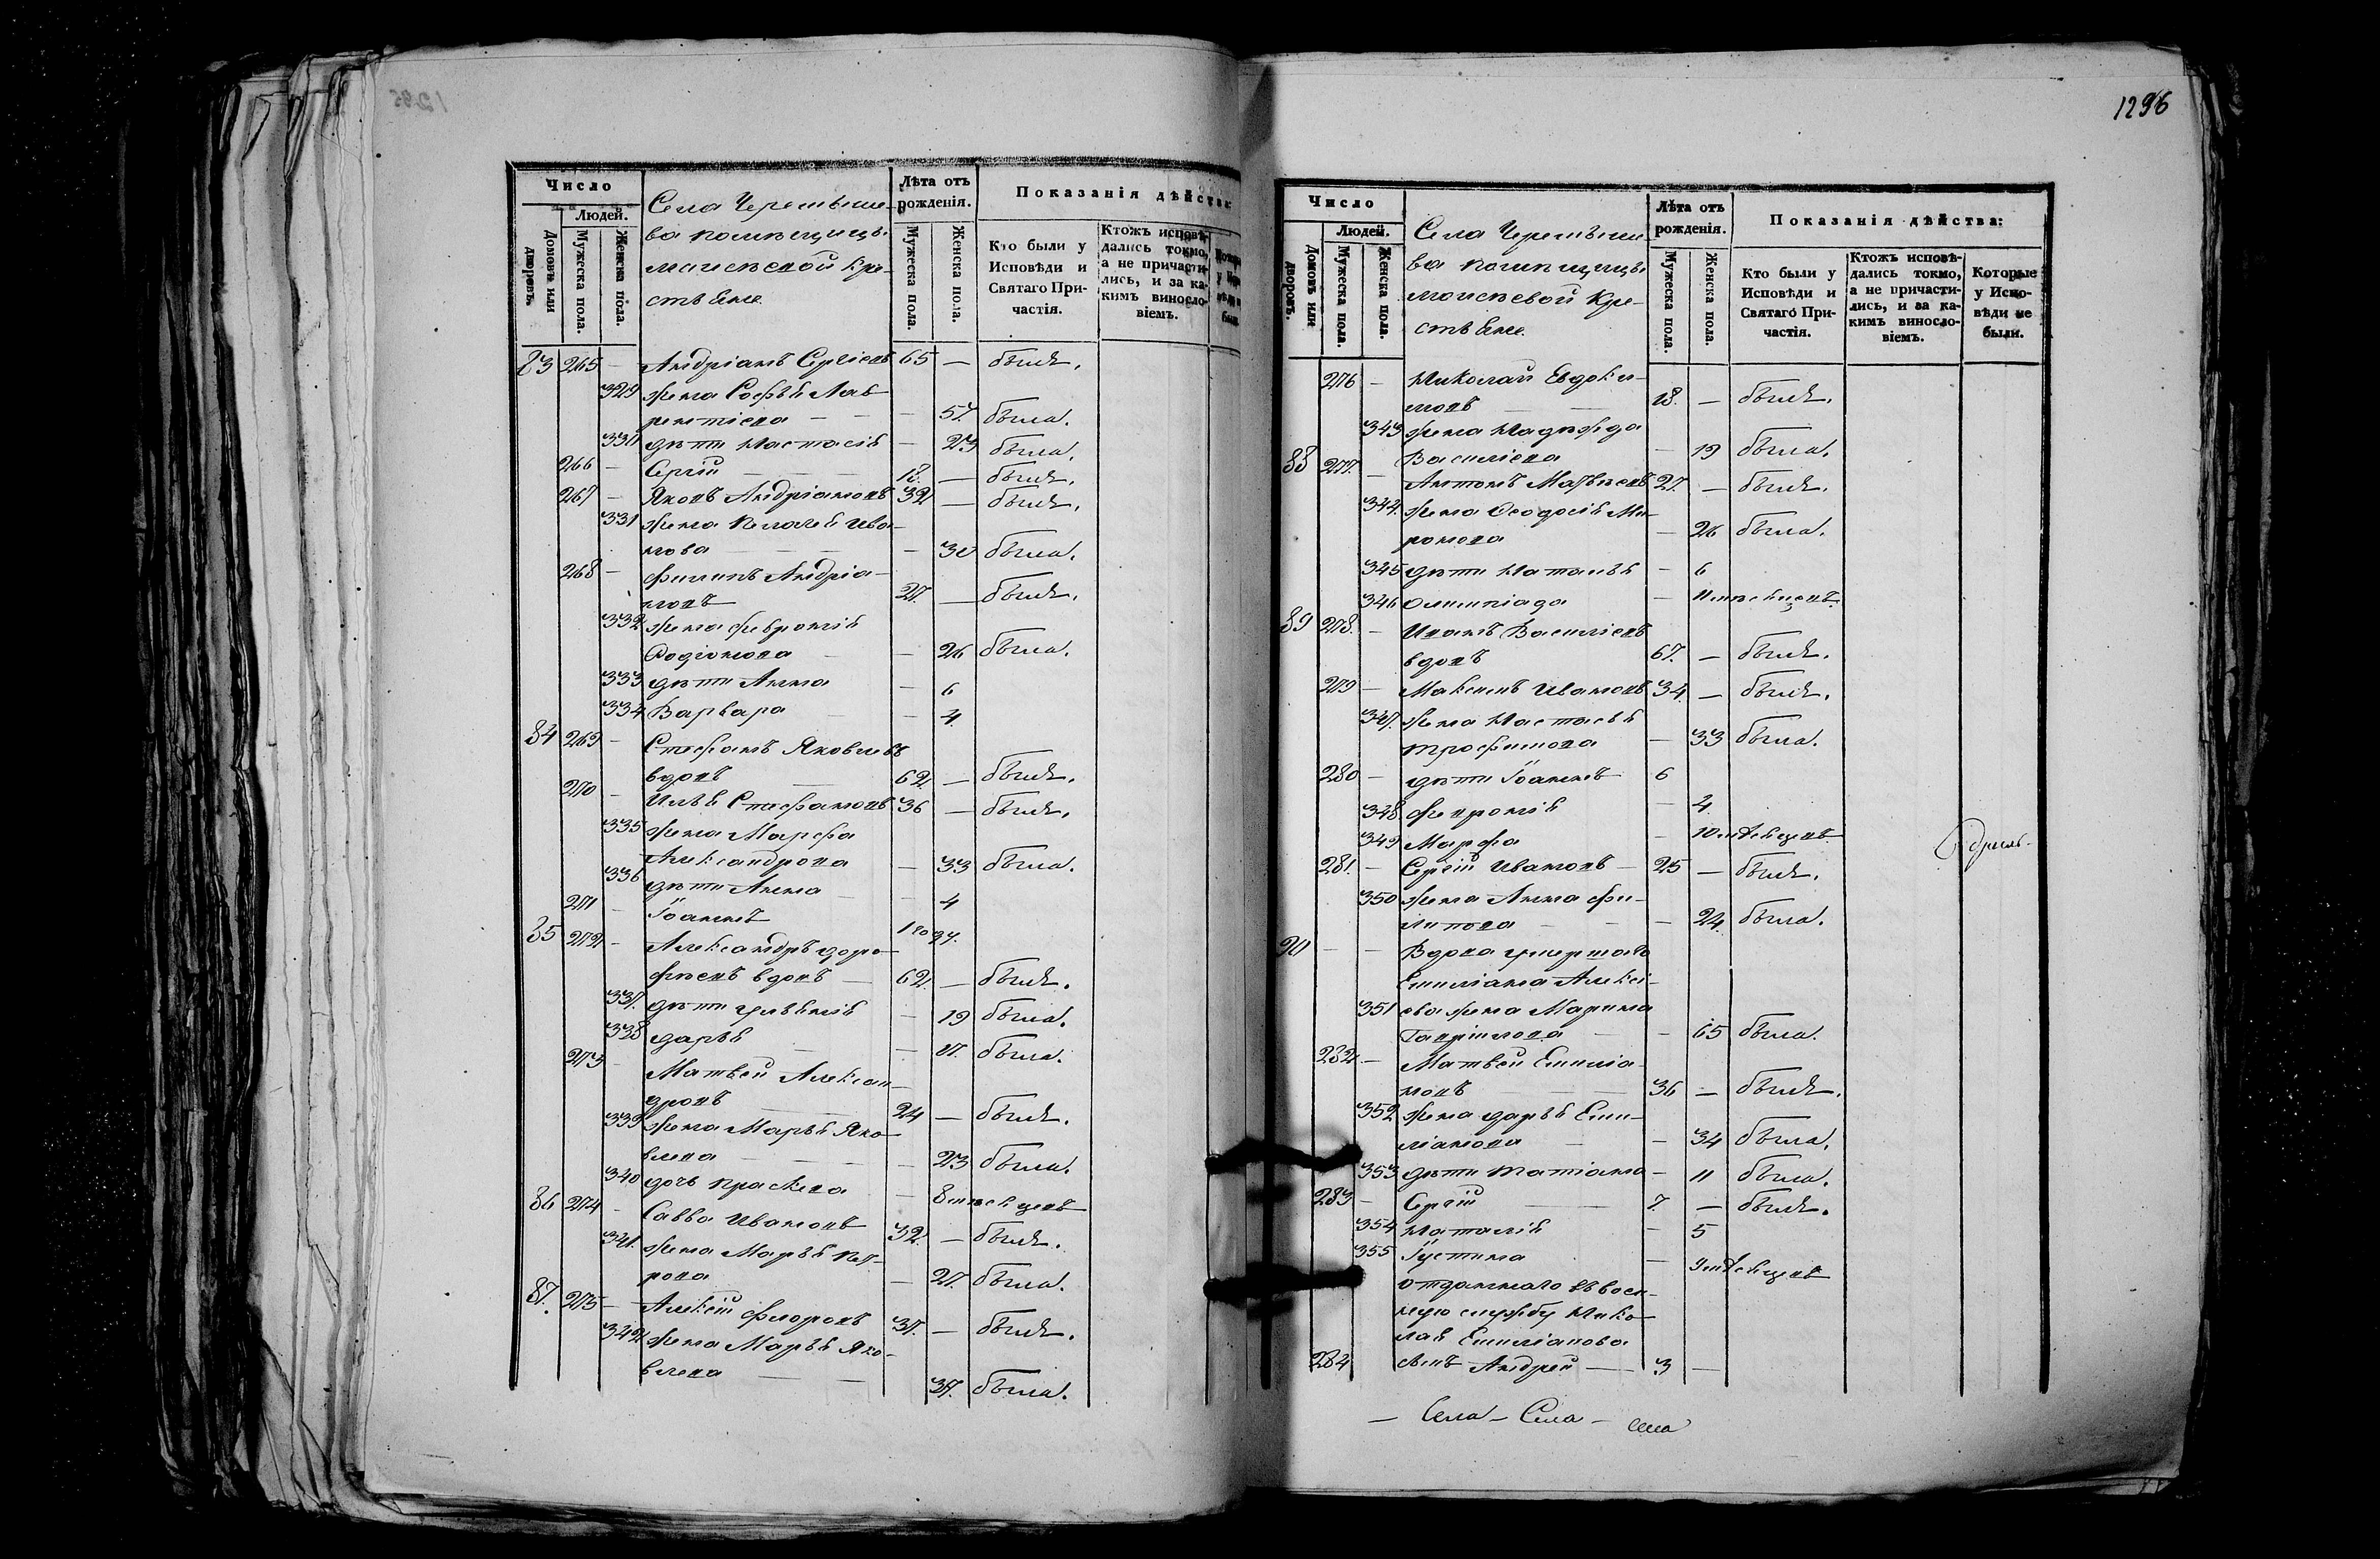 1296
Число
Людей.
Домовъ или дворовъ.
Мужеска пола.
Женска пола.
Села Черемыше-
ва помѣщицы
моисеевой кре-
стьяне
Лѣта отъ рожденія.
Мужеска пола.
Женска пола.
Показанія дѣйства:
Кто были у Исповѣди и Святаго При-частія.
Ктожъ исповѣ-дались токмо, а не причасти-лись, и за ка-кимъ винословіемъ.
83 265 — Андріанъ Сергіевъ 65 — былъ.
329 жена Софья Лав-
рентіева — — 57. была.
330 дѣти Настасія — 23 была.
266 — Сергій 18. — былъ.
267 — Яковъ Андріановъ 32 — былъ.
331 жена Пелагея Ива-
нова — 30 была.
268 — Филипъ Андріа-
новъ 27. — былъ.
332 жена Февронія
Родіонова — 26 была.
333 дѣти Анна — 6
334 Варвара — 4
84 269 — Стефанъ Яковлевъ
вдовъ 62. — былъ.
270 — Илья Стефановъ 36 — былъ.
335 жена Марфа
Александрова — 33 была.
336 дѣти Анна — 4
271 — Іоаннъ 1го
85 272 — Александръ Доро-
феевъ вдовъ — 62. — былъ.
337. дѣти Ульянія — 19 была.
338 Дарья — 17. была.
273 — Матвей Алексан-
дровъ 24 — былъ.
339 жена Марья Яко-
влева — 23 была.
340 дочь Праскева — 8 мѣсяцевъ
86 274 — Савва Ивановъ 32. — былъ.
341. жена Марья Пет-
рова — 27. была.
87. 275 — Алексій Федоровъ 37. — былъ.
342 жена Марья Яко-
влева — — 37. была.
Число
Людей.
Домовъ или дворовъ.
Мужеска пола.
Женска пола.
Села Черемыше-
ва помѣщицы
моисеевой Кре-
стьяне.
Лѣта отъ рожденія.
Мужеска пола.
Женска пола.
Показанія дѣйства:
Кто были у Исповѣди и Святаго При-частія.
Ктожъ исповѣ-дались токмо, а не причасти-лись, и за ка-кимъ винословіемъ.
Которые у Испо-вѣди не были.
276 — Николай Евдоки-
мовъ 18. — былъ.
343 жена Надежда
Васильева — 19 была.
88 277. — Антонъ Матвеевъ 27. — былъ.
344. жена Ѳеодосія Ми-
ронова — 26 была.
345 дѣти Наталья — 6
346 Олимпіада — 11 мѣсяцевъ.
89 278. — Иванъ Василіевъ
вдовъ 67. — былъ.
279 — Максимъ Ивановъ 34. — былъ.
347. жена Настасья
Трофимова — 33 была.
280 — дѣти Іоаннъ 6
348 Февронія — 4.
349 Марфа — 10 мѣсяцевъ.
281. — Сергій Ивановъ — 25 — былъ.
350 жена Анна Фи-
липова — 24. была.
90 — — Вдова умершаго
Емиліана Алексі-
351 ева жена Марина
Гавріилова — 65 была.
282. — Матвей Емилiа-
новъ 36 — былъ.
352 жена Дарья Еми-
ліанова — 34 была.
353 дѣти Татіана — 11 была.
283 — Сергій 7. — былъ.
354 Наталія — 5
355 Іустина — 9 мѣсяцевъ
отданнаго въ воен-
ную службу Нико-
лая Емиліанова
284 сынъ Андрей — 3 —
— Села — Села — села